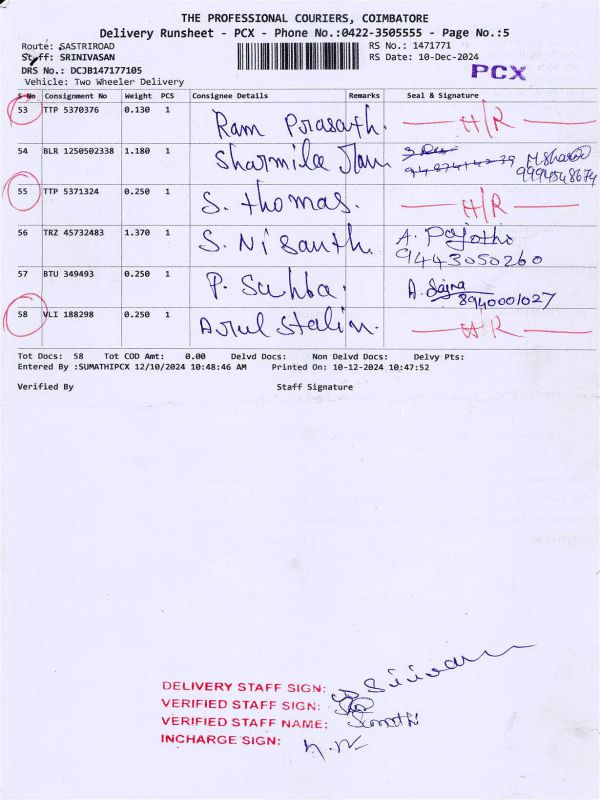 THE PROFESSIONAL COURIERS, COIMBATORE
Delivery Runsheet - PCX - Phone No.:0422-3505555 - Page No.:5
Route: SASTRIROAD RS No.: 1471771
Staff: SRINIVASAN RS Date: 10-Dec-2024
DRS No.: DCJB147177105 PCX
Vehicle: Two Wheeler Delivery
S No Consignment No Weight PCS Consignee Details Remarks Seal & Signature
53 TTP 5370376 0.130 1 Ram Prasath. H/R
54 BLR 1250502338 1.180 1 Sharmilee
9994548674
55 TTP 5371324 0.250 1 S. Thomas. H/R
56 TRZ 45732483 1.370 1 S. Nisanth. A.
9443050260
57 BTU 349493 0.250 1 P. A.
8940001027
58 VLI 188298 0.250 1 Arul Stalin. H/R
Tot Docs: 58 Tot COD Amt: 0.00 Delvd Docs: Non Delvd Docs: Delvy Pts:
Entered By :SUMATHIPCX 12/10/2024 10:48:46 AM Printed On: 10-12-2024 10:47:52
Verified By Staff Signature
DELIVERY STAFF SIGN:
VERIFIED STAFF SIGN:
VERIFIED STAFF NAME: Sumathi
INCHARGE SIGN: